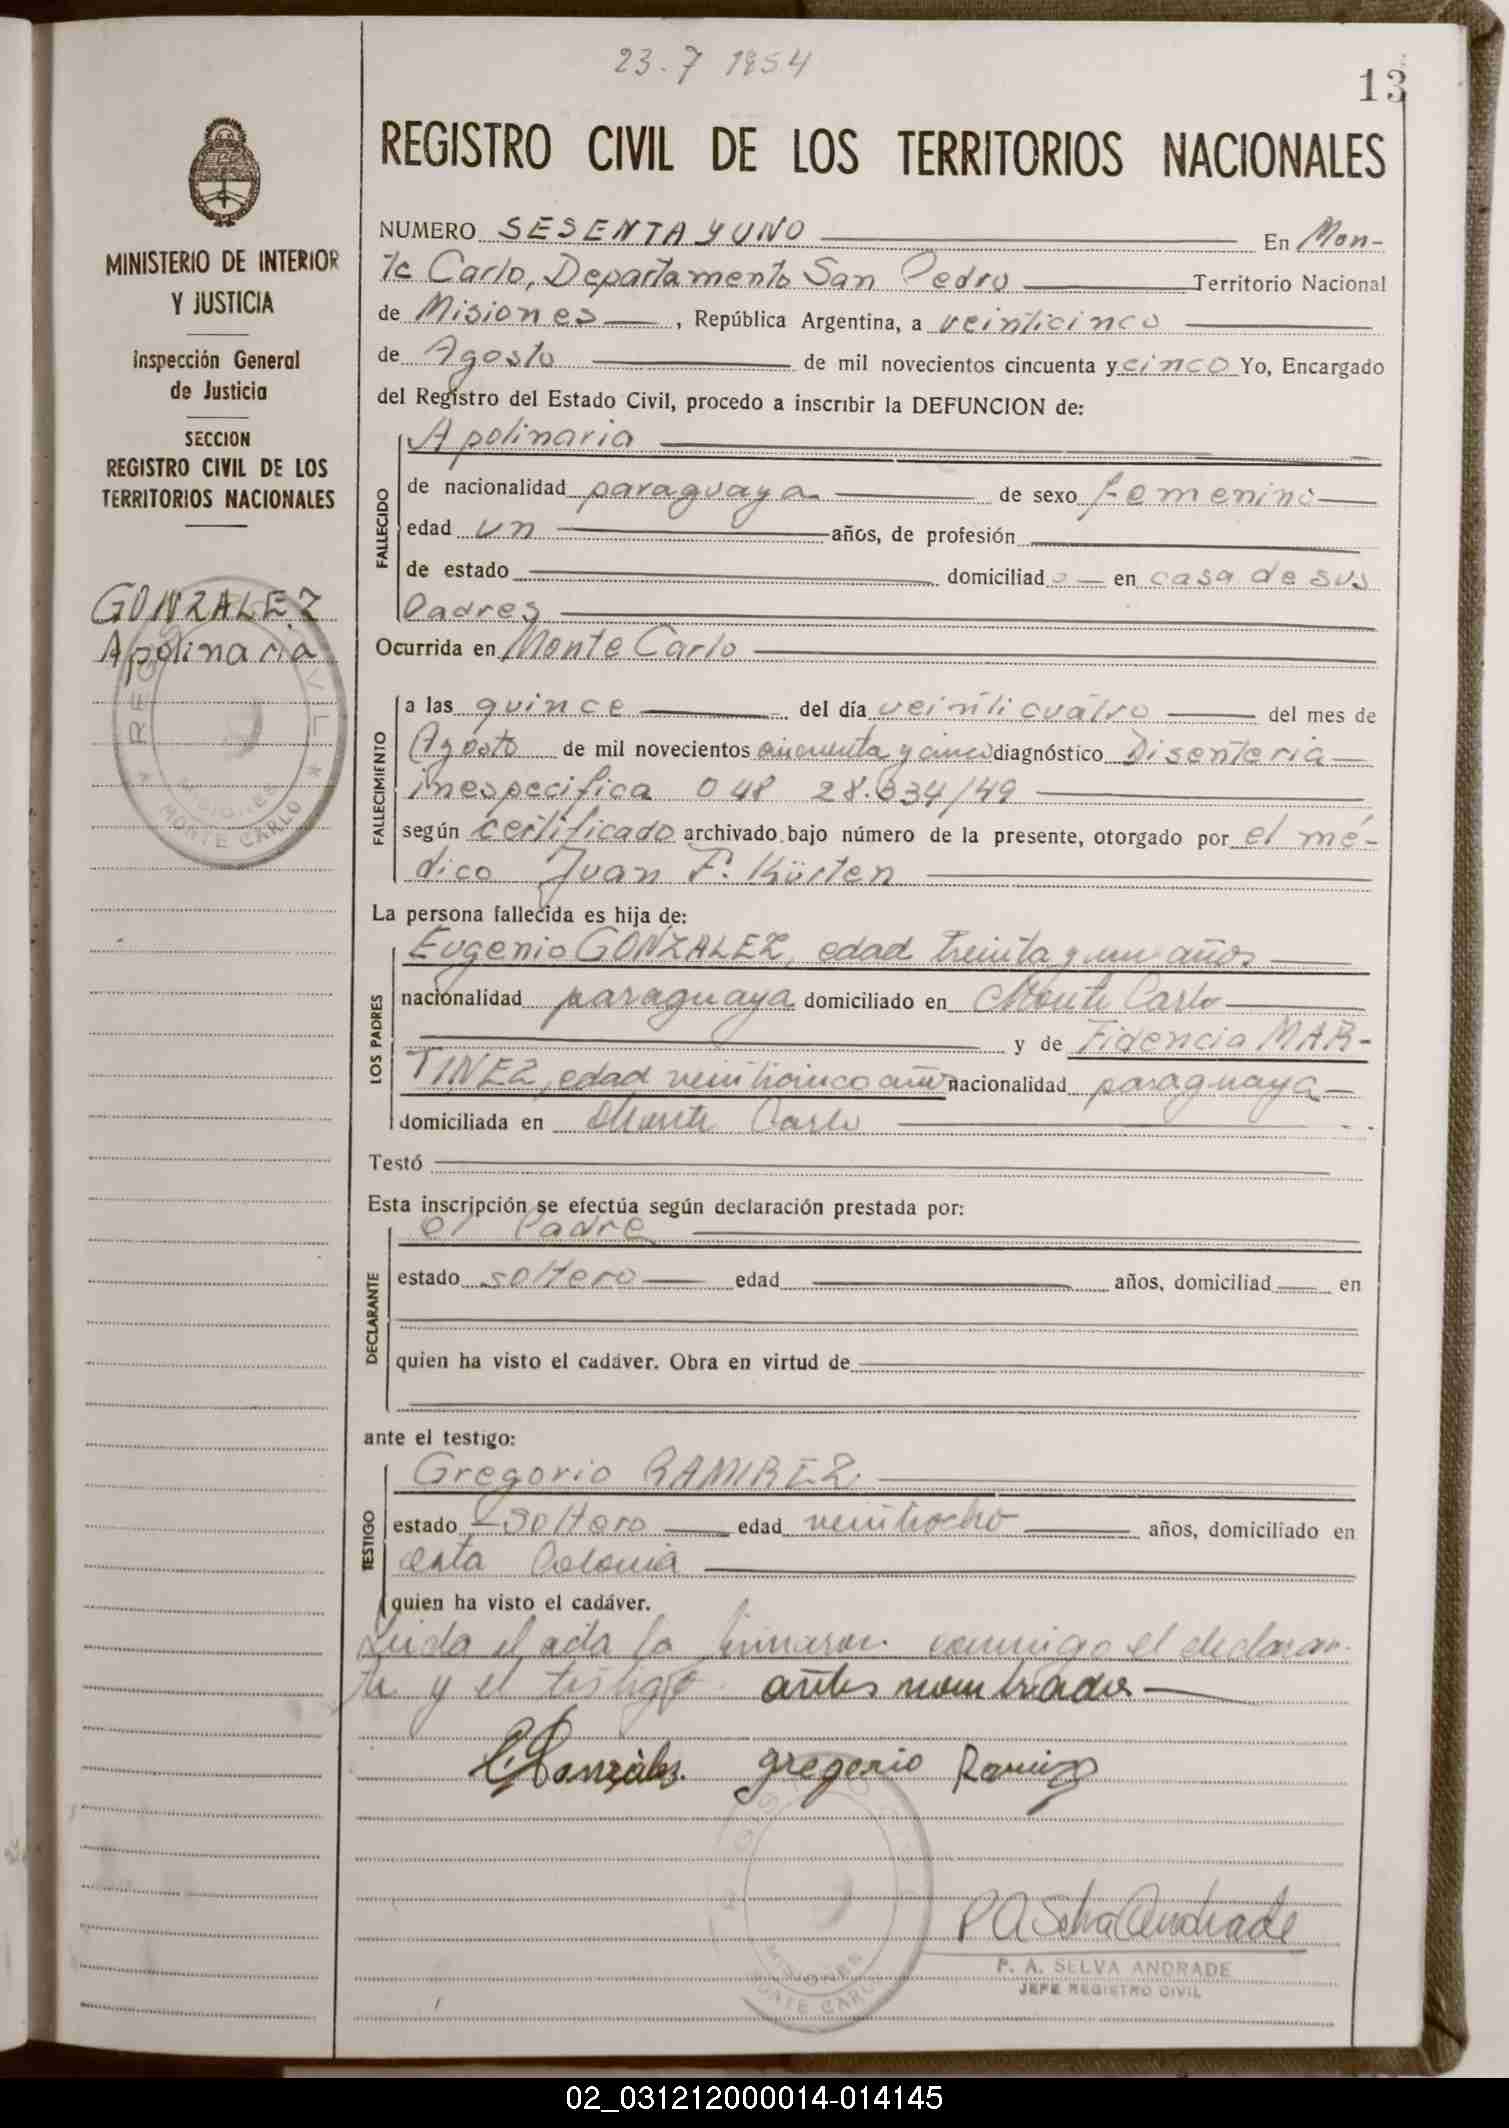 23.7 1954
13
MINISTERIO DE INTERIOR
Y JUSTICIA
Inspección General
de Justicia
SECCION
REGISTRO CIVIL DE LOS
TERRITORIOS NACIONALES
GONZALEZ
Apolinaria
MISIONES
MONTE CARLO
REGISTRO CIVIL DE LOS TERRITORIOS NACIONALES
NUMERO SESENTA Y UNO En Mon-
te Carlo, Departamento San Pedro Territorio Nacional
de Misiones, República Argentina, a veinticinco
de Agosto de mil novecientos cincuenta y cinco Yo, Encargado
del Registro del Estado Civil, procedo a inscribir la DEFUNCION de:
FALLECIDO
Apolinaria
de nacionalidad paraguaya de sexo femenino
edad un años, de profesión
de estado domiciliado en casa de sus
Padres
Ocurrida en Monte Carlo
FALLECIMIENTO
a las quince del día veinticuatro del mes de
Agosto de mil novecientos cincuenta y cinco diagnóstico Disenteria
inespecifica 048 28.634/49
según certificado archivado bajo número de la presente, otorgado por el mé-
dico Juan F. Kürten
La persona fallecida es hija de:
LOS PADRES
Eugenio GONZALEZ, edad treinta y un años
nacionalidad paraguaya domiciliado en Monte Carlo
y de Fidencia MAR-
TINEZ, edad veinticinco años nacionalidad paraguaya
domiciliada en Monte Carlo
Testó
Esta inscripción se efectúa según declaración prestada por:
DECLARANTE
el Padre
estado soltero edad años, domiciliad en
quien ha visto el cadáver. Obra en virtud de
ante el testigo:
TESTIGO
Gregorio RAMIREZ
estado soltero edad veintiocho años, domiciliado en
esta Colonia
quien ha visto el cadáver.
Leida el acta la firmaron conmigo el declaran-
te y el testigo antes nombrados
E. Gonzàlez. gregorio Ramirez
MISIONES
MONTE CARLO
P A Selva Andrade
P. A. SELVA ANDRADE
JEFE REGISTRO CIVIL
02_031212000014-014145